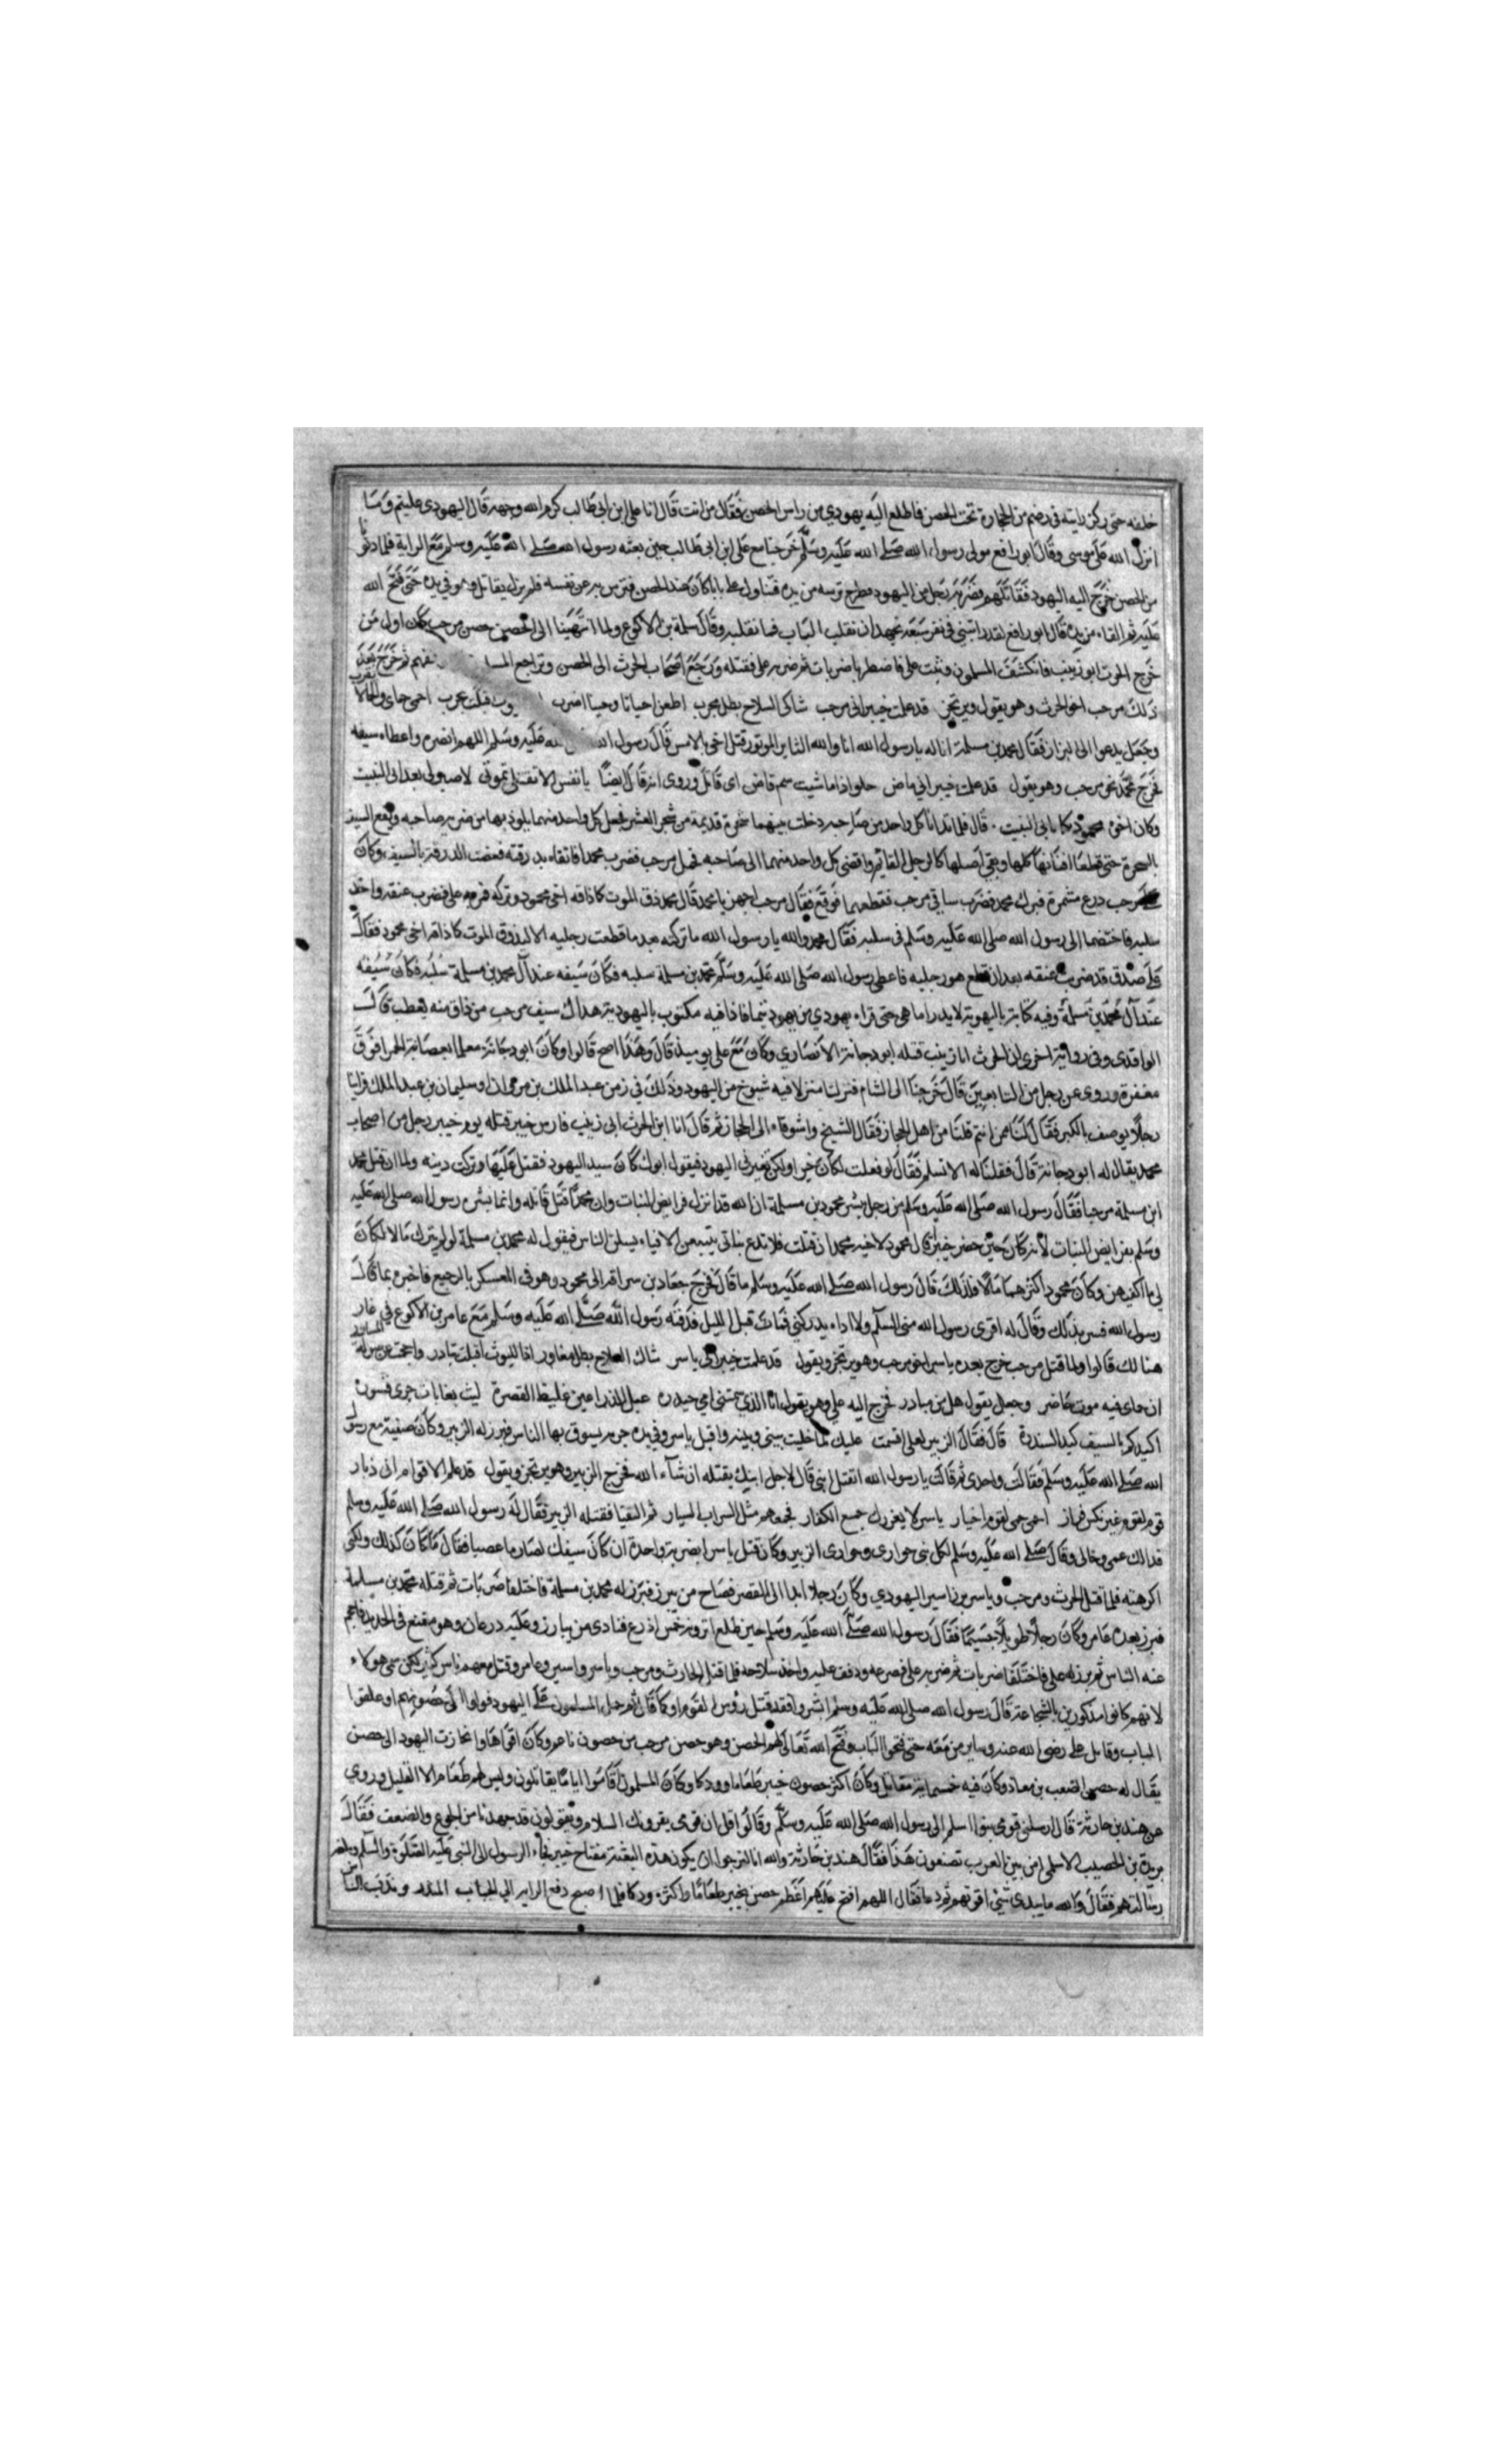 خلفه حتى ركن رايته في رضم من الحجارة تحت الحصن فاطلع اليه يهودي من راس الحصن فقال من انت قال انا علي ابن ابي طالب كرم الله وجهه قال اليهودي عليتم وما
انزل الله على موسى وقال ابو رافع مولى رسول الله صلى الله عليه وسلم خرجنا مع علي ابن ابي طالب حين بعثه رسول الله صلى الله عليه وسلم مع الراية فلما دنونا
من الحصن خرج اليه اليهود فقاتلهم فضربه رجل من اليهود فطرح ترسه من يده فتناول علي بابا كان عند الحصن فترس به عن نفسه فلم يزل يقاتل وهو في يده حتى فتح الله
عليه ثم القاه من يده قال ابو رافع لقد رايتني في نفر سبعة نجهد ان نقلب الباب فما نقلبه وقال سلمة بن الاكوع ولما انتهينا الى الحصين حصن مرحب كان اول من
خرج الحرث ابو زينب فانكشف المسلمون وثبت علي فاضطربا ضربات ثم ضربه علي فقتله ورجع اصحاب الحرث الى الحصن وتراجع ثم خرج بعد
ذلك مرحب اخو الحرث وهو يقول ويرتجز قد علمت خيبر اني مرحب شاكي السلاح بطل مجرب اطعن احيانا وحينا اضرب اقبلت تجرب احمى حماى والحمالا يقرب
وجعل يدعوا الى البراز فقال محمد بن مسلمة انا له يا رسول الله انا والله الثاير الموتور قتل اخي بالامس قال رسول الله عليه وسلم اللهم انصره واعطاه سيفه
فخرج محمد نحو مرحب وهو يقول قد علمت خيبر اني ماض حلو اذا ما شيت سم قاض اى قاتل وروى انه قال ايضا يا نفس الا تقتلي تموتي لا صبر لي بعد ابي النبيت
وكان اخوه محمود يكنا بابي النبيت قال فلما تدانا كل واحد من صاحبه دخلت بينهما شجرة قديمة من شجر العشر فجعل كل واحد منهما يلوذ بها من ضرب صاحبه ويقع السيف
بالشجرة حتى قطعا افنانها كلها وبقي اصلها كالرجل القايم وافضى كل واحد منهما الى صاحبه فحمل مرحب فضرب محمدا فاتقاه بدرقته فعضت الدرقة بالسيف وكان
على مرحب درع مشمرة فبرك محمد فضرب ساقي مرحب فقطعهما فوقع فقال مرحب اجهز يا محمد قال محمد ذق الموت كما ذاقه اخي محمود وتركه فمر به علي فضرب عنقه واخذ
سلبه فاختصما الى رسول الله صلى الله عليه وسلم في سلبه فقال محمد والله يا رسول الله ما تركته بعد ما قطعت رجليه الا ليذوق الموت كما ذاقه اخي محمود فقال
علي صدق قد ضربت عنقه بعد ان قطع هو رجليه فاعطى رسول الله صلى الله عليه وسلم محمد بن مسلمة سلبه فكان سيفه عند آل محمد بن مسلمة سلبه فكان سيفه
عند آل محمد بن مسلمة وفيه كتابة باليهوية لا يدرا ما هي حتى قراه يهودي من يهود تيما فاذا فيه مكتوب باليهودية هذا سيف مرحب من ذاق منه يعطب قال
الواقدي وفي رواية اخرى ان الحرث ابا زينب قتله ابو دجانة الانصاري وكان مع علي يوميذ قال وهذا اصح قالوا وكان ابو دجانة معلما بعصابة الحمرا فوق
مغفرة وروى عن رجل من التابعين قال خرجنا الى الشام فنزلنا منزلا فيه شيوخ من اليهود وذلك في زمن عبد الملك بن مروان او سليمان بن عبد الملك فراينا
رجلا يوصف بالكبر فقال لنا من انتم قلنا من اهل الحجاز فقال الشيخ واشوقاه الى الحجاز ثم قال انا ابن الحرث ابى زينب فارس خيبر قتله يوم خيبر رجل من اصحاب
محمد يقال له ابو دجانة قال فقلنا له الا تسلم فقال لو فعلت لكان خيرا ولكن تعيرني اليهود فيقول ابوك كان سيد اليهود فقتل عليها وتركت دينه ولما ان قتل محمد
ابن مسلمة مرحبا فقال رسول الله صلى الله عليه وسلم من رجل يبشر محمود بن مسلمة ان الله قد انزل فرايض البنات وان محمدا قتل قاتله وانما بشره رسول الله صلى الله عليه
وسلم بفرايض البنات لانه كان حين حضر خيبر قال محمود لاخيه محمد ان قتلت فلا تدع بناتي يتبعن الافياء يسلن الناس فيقول له محمد بن مسلمة لو لم يترك مالا لكان
لي ما اكفيهن وكان محمود اكثرهما مالا فلذلك قال رسول الله صلى الله عليه وسلم ما قال فخرج جعاد بن سراقة الى محمود وهو في المعسكر بالرجيع فاخبره بما قال
رسول الله فسر بذلك وقال له اقرى رسول الله مني السلام ولا اراه يدركني فمات قبل الليل فدفنه رسول الله صلى الله عليه وسلم مع عامر بن الاكوع في غار
هنالك قالوا ولما قتل مرحب خرج بعده ياسر اخو مرحب وهو يرتجز ويقول قد علمت خيبر اني ياسر شاك السلاح بطل مغاور اذا الليوث اقبلت تبادر واحجمت عن صولة المساور
ان حماى فيه موت حاضر وجعل يقول هل من مبادر فخرج اليه علي وهو يقول انا الذي سمتني امي حيدره عبل الذراعين غليظ القصرة ليث بغابات جرى قسوره
اكيدكم بالسيف كيد السندرة قال فقال الزبير لعلي اقسمت عليك لما خليت بيني وبينه واقبل ياسر وفي يده حربه يسوق بها الناس فبرز له الزبير وكان صفية مع رسول
الله صلى الله عليه وسلم فقالت واحدى ثم قالت يا رسول الله اتقتل ابني قال لا جل ابنك يقتله ان شاء الله فخرج الزبير وهو يرتجز ويقول قد علم الاقوام اني ذبار
قوم لقوم غير نكس فرار احمى حمى لقوم اخيار ياسر لا يغررك جمع الكفار فجمعهم مثل السراب السيار ثم التقيا فقتله الزبير فقال له رسول الله صلى الله عليه وسلم
فداك عمي وخالي وقال صلى الله عليه وسلم لكل نبي حواري وحواري الزبير وكان قتل ياسرا بضربة واحدة ان كان سيفك لصارما عصبا فقال ما كان كذلك ولكني
اكرهته فلما قتل الحرث ومرحب وياسر برز اسير اليهودي وكان رجلا ابدا الى القصر فصاح من يبرز فبرز له محمد بن مسلمة فاختلفا ضربات ثم قتله محمد بن مسلمة
فبرز بعده عامر وكان رجلا طويلا جسيما فقال رسول الله صلى الله عليه وسلم حين طلع اترونه خمس اذرع فنادى من يبارز وعليه درعان وهو مقنع في الحديد فاحجم
عنه الناس ثم برز له علي فاختلفا ضربات ثم ضربه علي فصرعه ودفف عليه واخذ سلاحه فلما قتل الحارث ومرحب وياسر واسير وعامر وقتل معهم ناس كثير لكن سمي هولاء
لانهم كانوا مذكورين بالشجاعة قال رسول الله صلى الله عليه وسلم ابشروا فقد قتل رؤس القوم او كما قال ثم حمل المسلمون على اليهود فولوا الى حصونهم او علقوا
الباب وقاتل علي رضي الله عنه وساير من معه حتى فتحوا الباب وفتح الله تعالى لهم الحصن وهو حصن مرحب من حصون ناعم وكان اقواها وانحازت اليهود الى حصن
يقال له حصن الصعب بن معاذ وكان فيه خمسماية مقاتل وكان اكثر حصون خيبر طعاما وودكا وكان المسلمون اقاموا اياما يقاتلون وليس لهم طعام الا القليل وروي
عن هند بن حارثة قال ارسلني قومي بنوا اسلم الى رسول الله صلى الله عليه وسلم وقالوا قل ان قومي يقرونك السلام ويقولون قد جهدنا من الجوع والضعف فقال
بريدة بن الحصيب الاسلمي امن بين العرب تصنعون هذا فقال هند بن حارثة والله انا لنرجوا ان يكون هذه البقعة مفتاح خيبر فجاء الرسول الى النبي عليه الصلوة والسلم وبلغه
رسالتهم فقال والله ما بيدي شيئ اقوتهم ثم دعا فقال اللهم افتح عليهم اعظم حصن بخيبر طعاما واكثره ودكا فلما اصبح دفع الراية الى الحباب المنذر وندب الناس